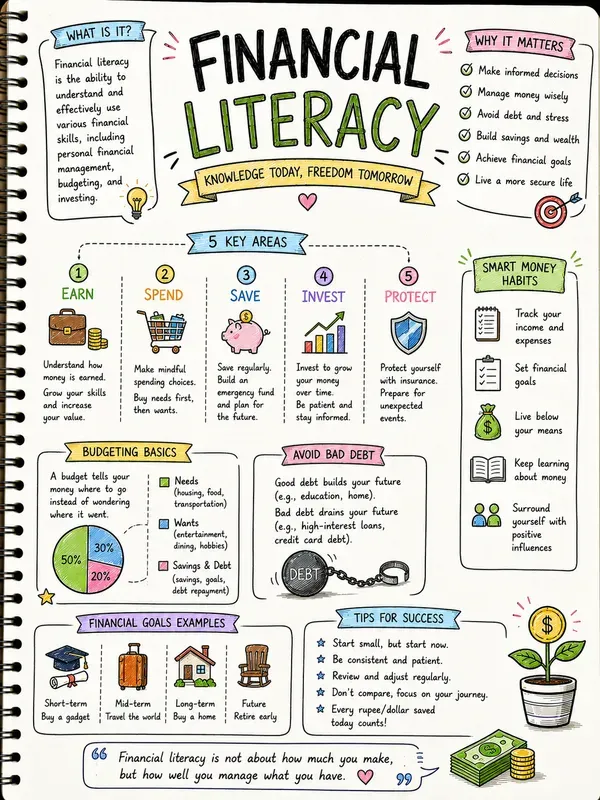 WHAT IS IT?
Financial literacy
is the ability to
understand and
effectively use
various financial
skills, including
personal financial
management,
budgeting, and
investing.
FINANCIAL
LITERACY
KNOWLEDGE TODAY, FREEDOM TOMORROW
WHY IT MATTERS
Make informed decisions
Manage money wisely
Avoid debt and stress
Build savings and wealth
Achieve financial goals
Live a more secure life
5 KEY AREAS
1
EARN
Understand how
money is earned.
Grow your skills
and increase
your value.
2
SPEND
Make mindful
spending choices.
Buy needs first,
then wants.
3
SAVE
$
Save regularly.
Build an
emergency fund
and plan for
the future.
4
INVEST
Invest to grow
your money
over time.
Be patient and
stay informed.
5
PROTECT
Protect yourself
with insurance.
Prepare for
unexpected
events.
SMART MONEY
HABITS
Track your
income and
expenses
Set financial
goals
$
Live below
your means
Keep learning
about money
Surround
yourself with
positive
influences
BUDGETING BASICS
A budget tells your
money where to go
instead of wondering
where it went.
50%
30%
20%
Needs
(housing, food,
transportation)
Wants
(entertainment,
dining, hobbies)
Savings & Debt
(savings, goals,
debt repayment)
AVOID BAD DEBT
Good debt builds your future
(e.g., education, home).
Bad debt drains your future
(e.g., high-interest loans,
credit card debt).
DEBT
FINANCIAL GOALS EXAMPLES
Short-term
Buy a gadget
Mid-term
Travel the world
Long-term
Buy a home
Future
Retire early
TIPS FOR SUCCESS
Start small, but start now.
Be consistent and patient.
Review and adjust regularly.
Don't compare, focus on your journey.
Every rupee/dollar saved
today counts!
$
$
“ Financial literacy is not about how much you make,
but how well you manage what you have. ”